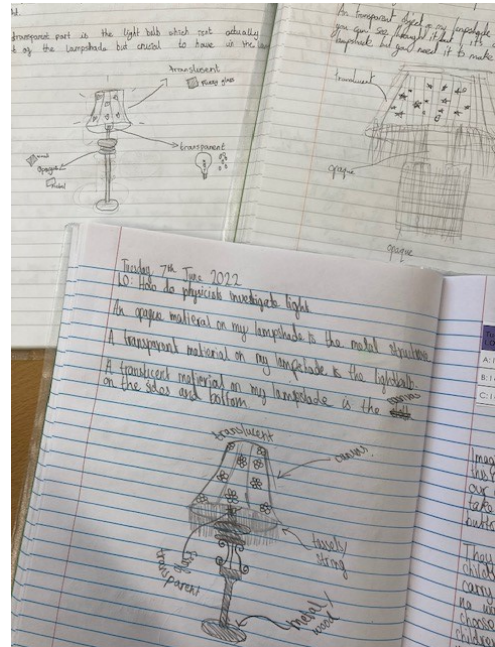 transparent part is the light bulb which isnt actually
of the lampshade but crucial to have in the
translucent
transparent
opaque
metal
An transparent object on my lampshade
you can see through it and it's
lampshade but you need it to make
translucent
opaque
opaque
Tuesday 7th June 2022
LO: How do physicists investigate light
An opaque matieral on my lampshade is the metal structure
A transparent material on my lampshade is the lightbulb.
A translucent material on my lampshade is the canvas
on the sides and bottom
translucent
canvas.
tassels/
string
glass
transparent
metal/
wood
A:
B:
C:
Imag
this
our
take
butto
They
childr
carry
no
choose
children